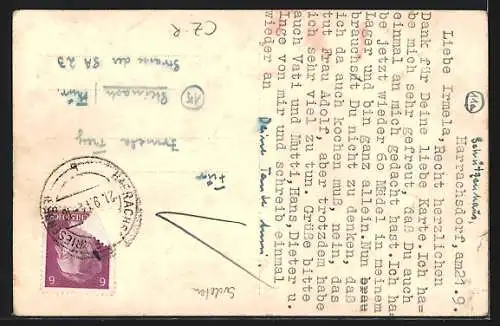 (11a) Schützenhaus,
Harrachsdorf, am 21.9.
Liebe Irmela, Recht herzlichen
Dank für Deine liebe Karte. Ich ha=
be mich sehr gefreut, daß Du auch
einmal an mich gedacht hast. Ich ha=
be jetzt wieder 60 Mädel in meinem
Lager und bin ganz allein. Nun brau
brauchst Du nicht zu denken, daß
ich da auch kochen muß, nein, das
tut Frau Adolf, aber trotzdem habe
ich sehr viel zu tun. Grüße bitte
auch Vati und Mutti, Hans, Dieter u.
Inge von mir und schreib einmal
wieder an Deine Tante Anni.
Für
Irmela Frey
(15)
Eisenach
Thür.
Strasse der SA 23
CZ-R
Sudeten
21.9.
6 6